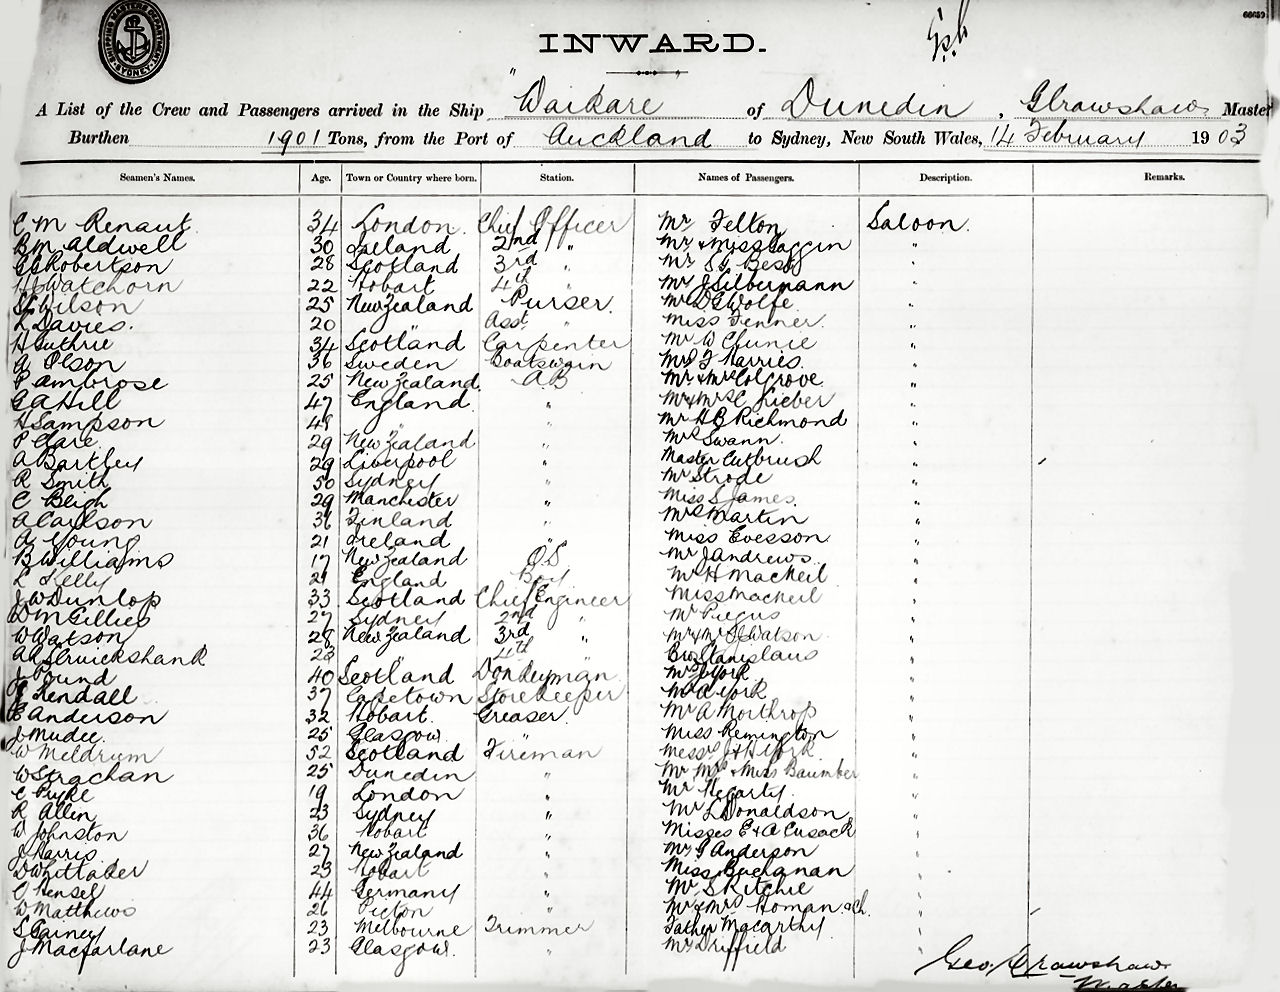 SHIPPING MASTERS DEPARTMENT SYDNEY
INWARD.
A List of the Crew and Passengers arrived in the Ship "Waikare of Dunedin, G Crawshaw Master
Burthen 1901 Tons, from the Port of Auckland to Sydney, New South Wales, 14 February 1903
Seamen's Names. Age. Town or Country where born. Station. Names of Passengers. Description. Remarks.
C M Renaut 34 London Chief Officer Mr Felton Saloon.
B M Aldwell 30 Ireland 2nd " Mr & Miss Gaggin "
Robertson 28 Scotland 3rd " Mr Best "
H Watchorn 22 Hobart 4th " Mr J Silbermann "
Wilson 25 New Zealand Purser. Mr D G Wolfe "
L Davies. 20 Asst " Miss Fenner. "
H Guthrie 34 Scotland Carpenter Mr W Clunie "
A Olson 36 Sweden Boatswain Mrs F Harries. "
P Ambrose 25 New Zealand AB Mr & Mrs Colgrove "
G A Hill 47 England " Mr & Mrs C Rieber "
H Sampson 49 " " Mr H B Richmond "
P Clare 29 New Zealand " Mrs Swann. "
A Bartley 29 Liverpool " Master Cutbrush "
R Smith 50 Sydney " Mr Strode "
C Beigh 29 Manchester " Miss S James "
A Carlson 36 Finland " Mrs Martin "
A Young 21 Ireland " Miss Evesson "
B Williams 17 New Zealand OS Mr J Andrews. "
L Kelly 21 England Boy Mr H MacNeil "
J W Dunlop 33 Scotland Chief Engineer Miss MacNeil "
D McGillies 27 Sydney 2nd " Mr "
W Watson 28 New Zealand 3rd " Mr & Mrs Watson "
Cruickshank 23 " 4th Bro Stanislaus "
J Pound 40 Scotland Donkeyman Mrs York "
Kendall 37 Capetown Storekeeper Mr A York "
E Anderson 32 Hobart. Greaser. Mr A Northrop "
J Mudie. 25 Glasgow. " Miss Remington "
W Meldrum 52 Scotland Fireman Messrs J & H York "
W Strachan 25 Dunedin " Mr Mrs & Miss Baumber "
C Pyke 19 London " Mr Hegarty. "
R Allen 23 Sydney " Mr L Donaldson "
W Johnston 36 Hobart " Misses E & A Cusack "
J Harris. 27 New Zealand " Mr G Anderson "
D Whittaker 23 Hobart " Miss Buchanan "
C Hensel 44 Germany " Mr S Ritchie "
W Matthews 26 Picton " Mr & Mrs Homan & ch. "
S Gainey 23 Melbourne Trimmer Father Macarthy. "
J Macfarlane 23 Glasgow. " Mr Driffield "
Geo. Crawshaw
Master